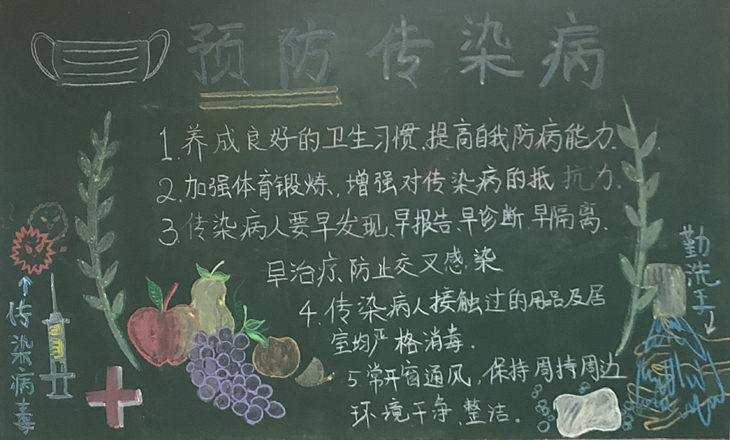 预防传染病
1.养成良好的卫生习惯,提高自我防病能力.
2.加强体育锻炼,增强对传染病的抵抗力.
3.传染病人要早发现、早报告、早诊断、早隔离、
早治疗、防止交叉感染
4.传染病人接触过的用品及居
室均严格消毒.
5常开窗通风,保持周持周边
环境干净、整洁.
传染病毒
勤洗手